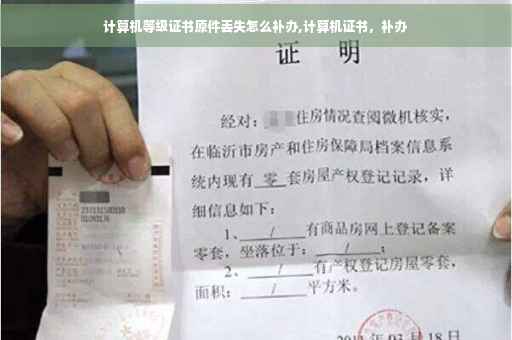 计算机等级证书原件丢失怎么补办,计算机证书，补办
证 明
经对：住房情况查阅微机核实，
在临沂市房产和住房保障局档案信息系
统内现有 零 套房屋产权登记记录，详
细信息如下：
1、 / 有商品房网上登记备案
零套，坐落位于： / ；
2、 / 有产权登记房屋零套，
面积： / 平方米。
03月18日